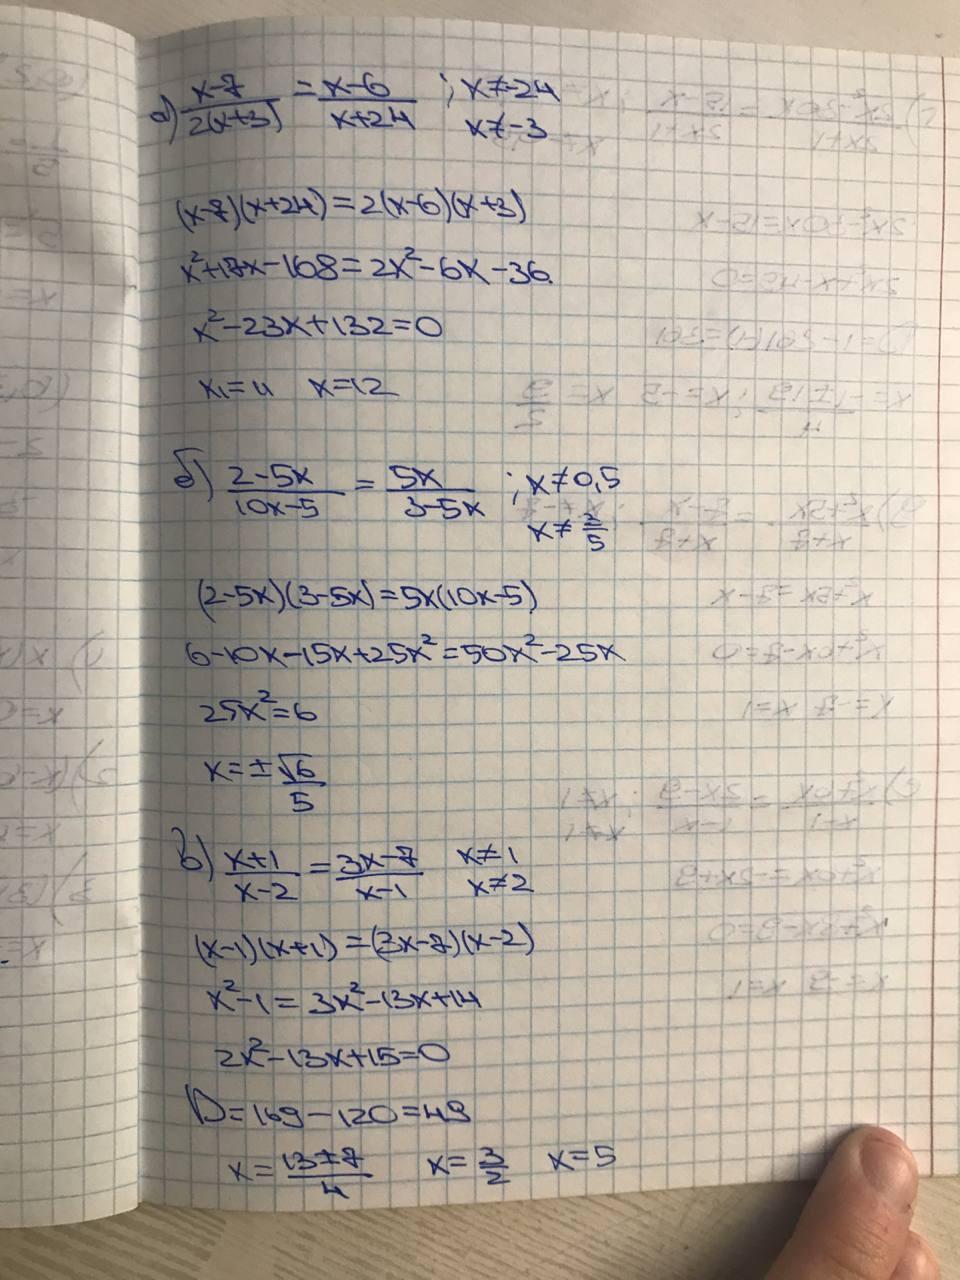 а) x-7/2(x+3) = x-6/x+24 ; x≠-24
x≠-3
(x-7)(x+24)=2(x-6)(x+3)
x²+17x-168=2x²-6x-36.
x²-23x+132=0
x₁=11 x=12
б) 2-5x/10x-5 = 5x/3-5x ; x≠0,5
x≠3/5
(2-5x)(3-5x)=5x(10x-5)
6-10x-15x+25x²=50x²-25x
25x²=6
x=±√6/5
в) x+1/x-2 = 3x-7/x-1 x≠1
x≠2
(x-1)(x+1)=(3x-7)(x-2)
x²-1=3x²-13x+14
2x²-13x+15=0
D=169-120=49
x=13±7/4 x=3/2 x=5